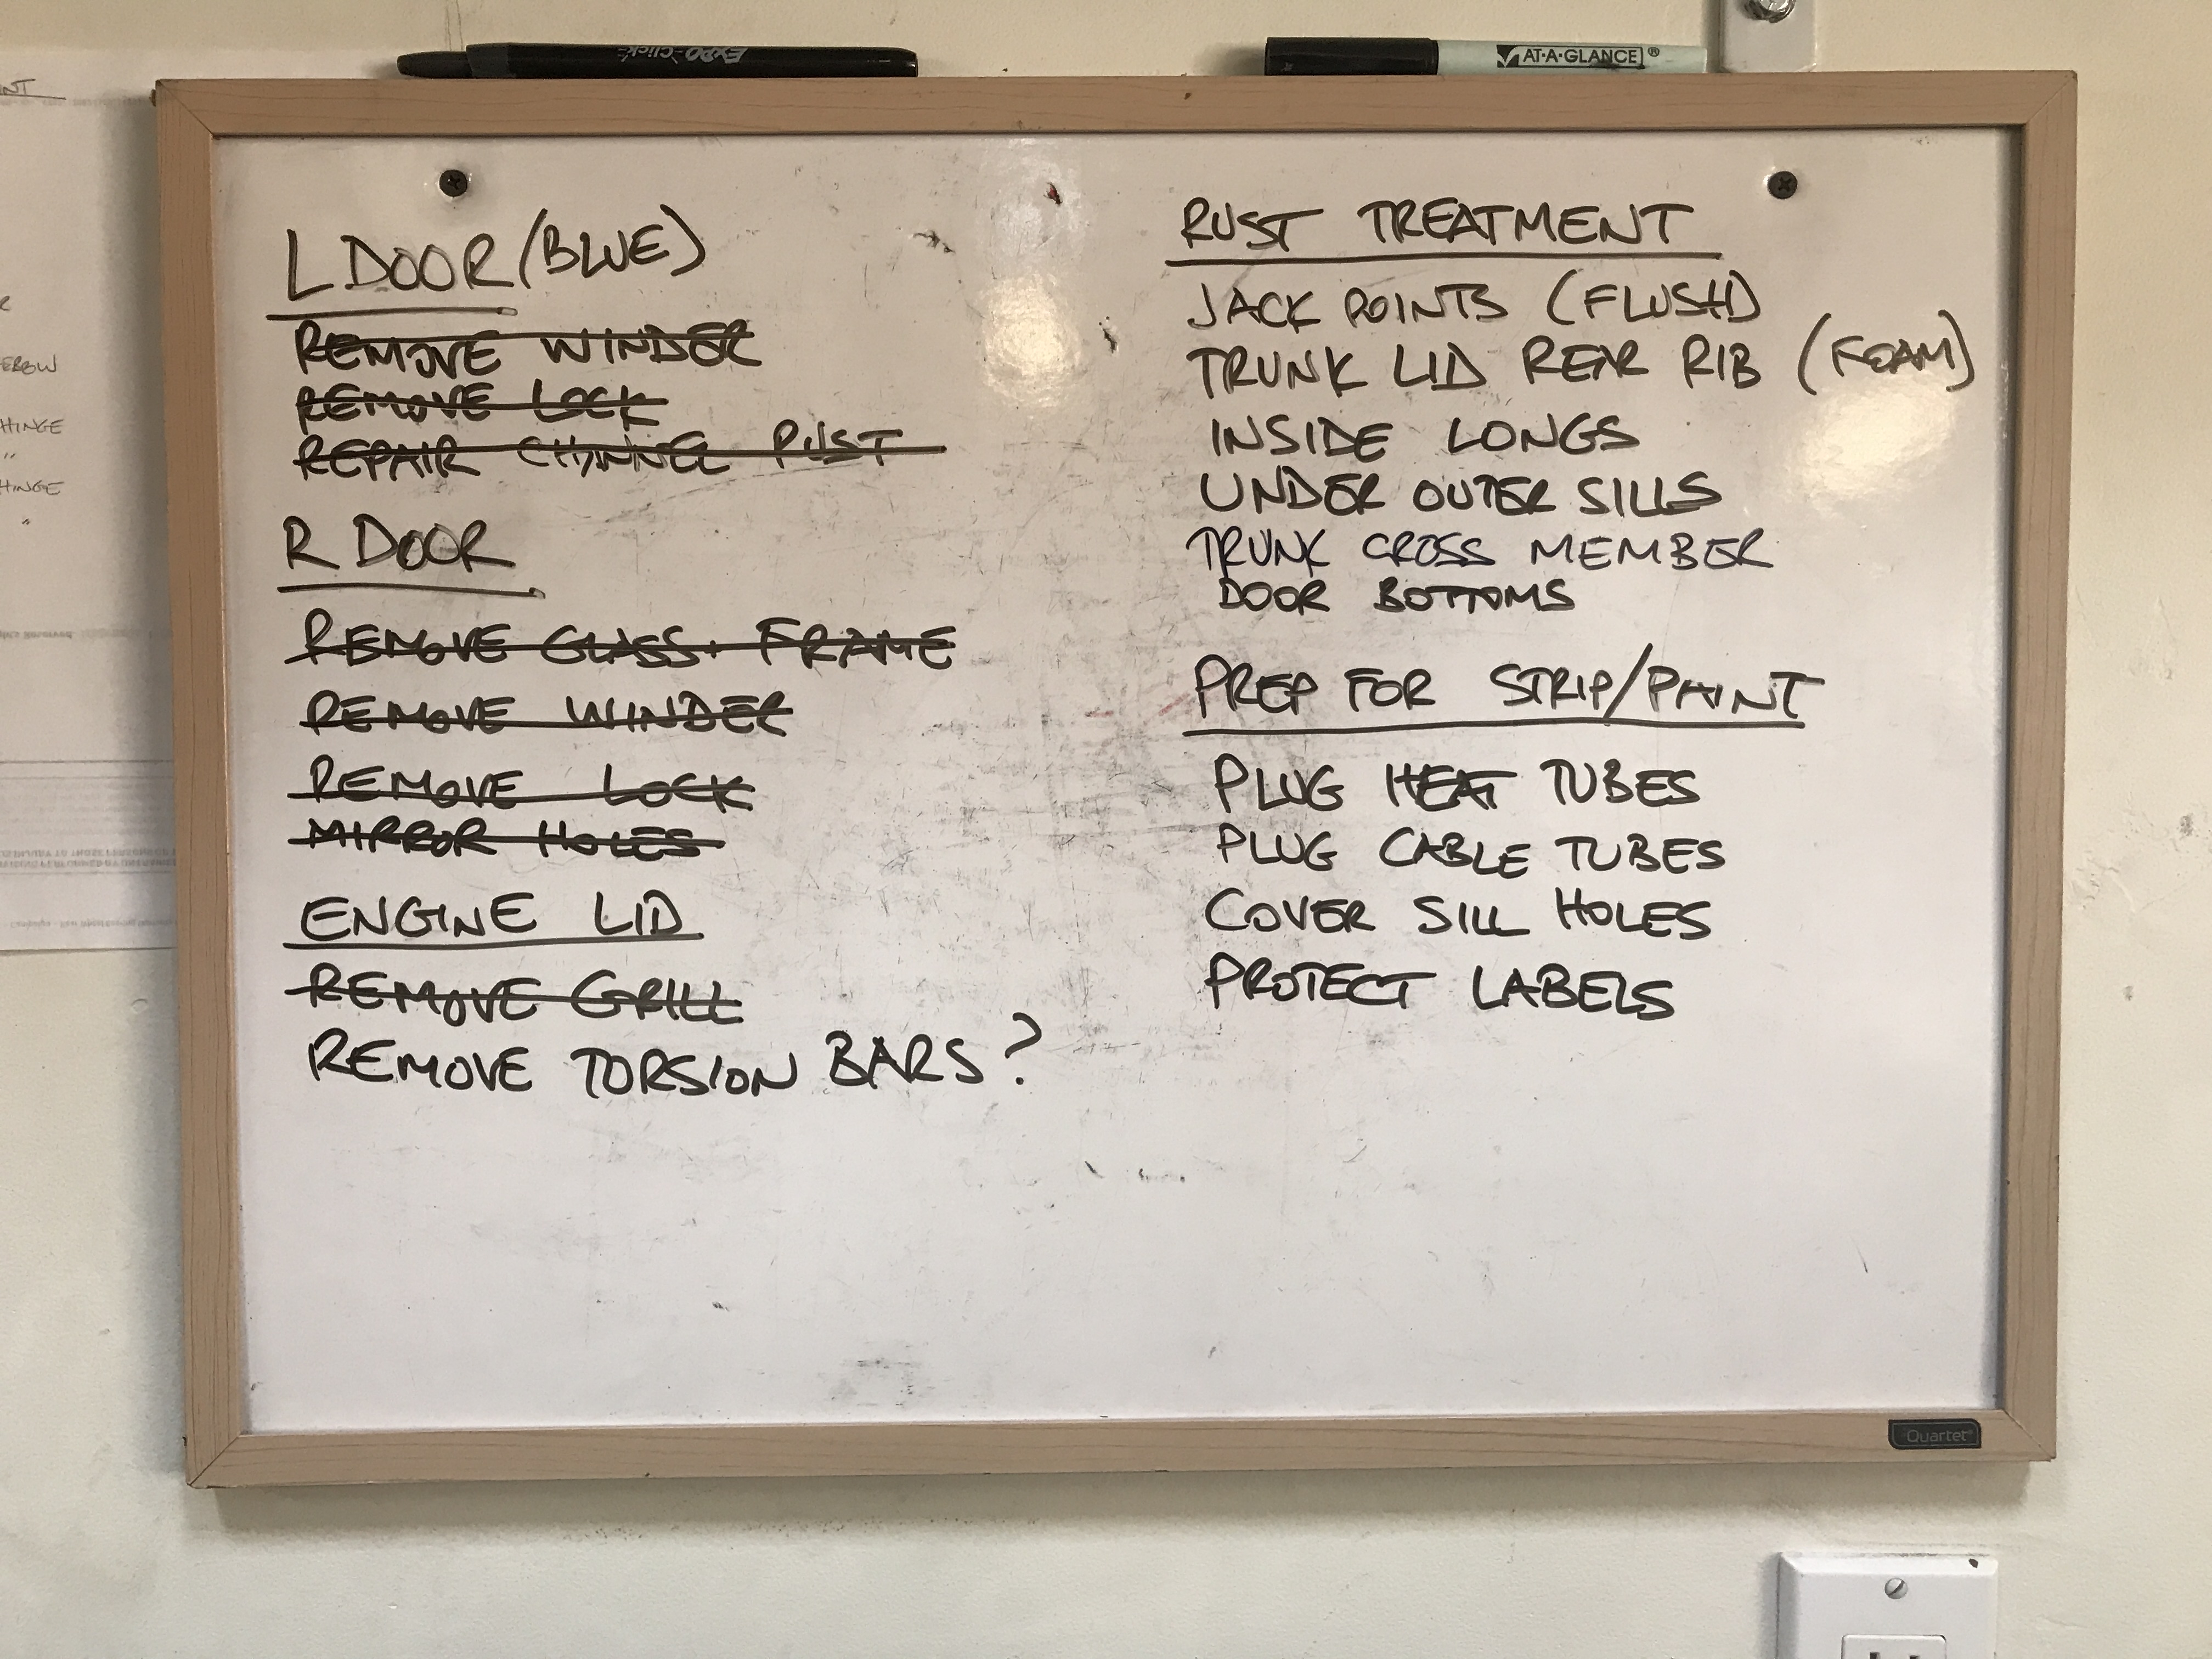 EXPO Click
AT-A-GLANCE®
L DOOR (BLUE)
REMOVE WINDER
REMOVE LOCK
REPAIR CHANNEL RUST
R DOOR
REMOVE GLASS + FRAME
REMOVE WINDER
REMOVE LOCK
MIRROR HOLES
ENGINE LID
REMOVE GRILL
REMOVE TORSION BARS?
RUST TREATMENT
JACK POINTS (FLUSH)
TRUNK LID REAR RIB (FOAM)
INSIDE LONGS
UNDER OUTER SILLS
TRUNK CROSS MEMBER
DOOR BOTTOMS
PREP FOR STRIP/PAINT
PLUG HEAT TUBES
PLUG CABLE TUBES
COVER SILL HOLES
PROTECT LABELS
Quartet
HINGE
"
HINGE
"